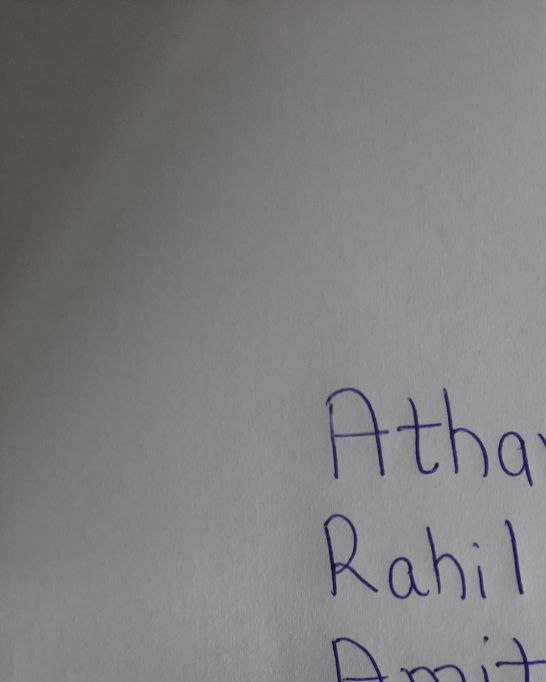 Atha
Rahil
Amit